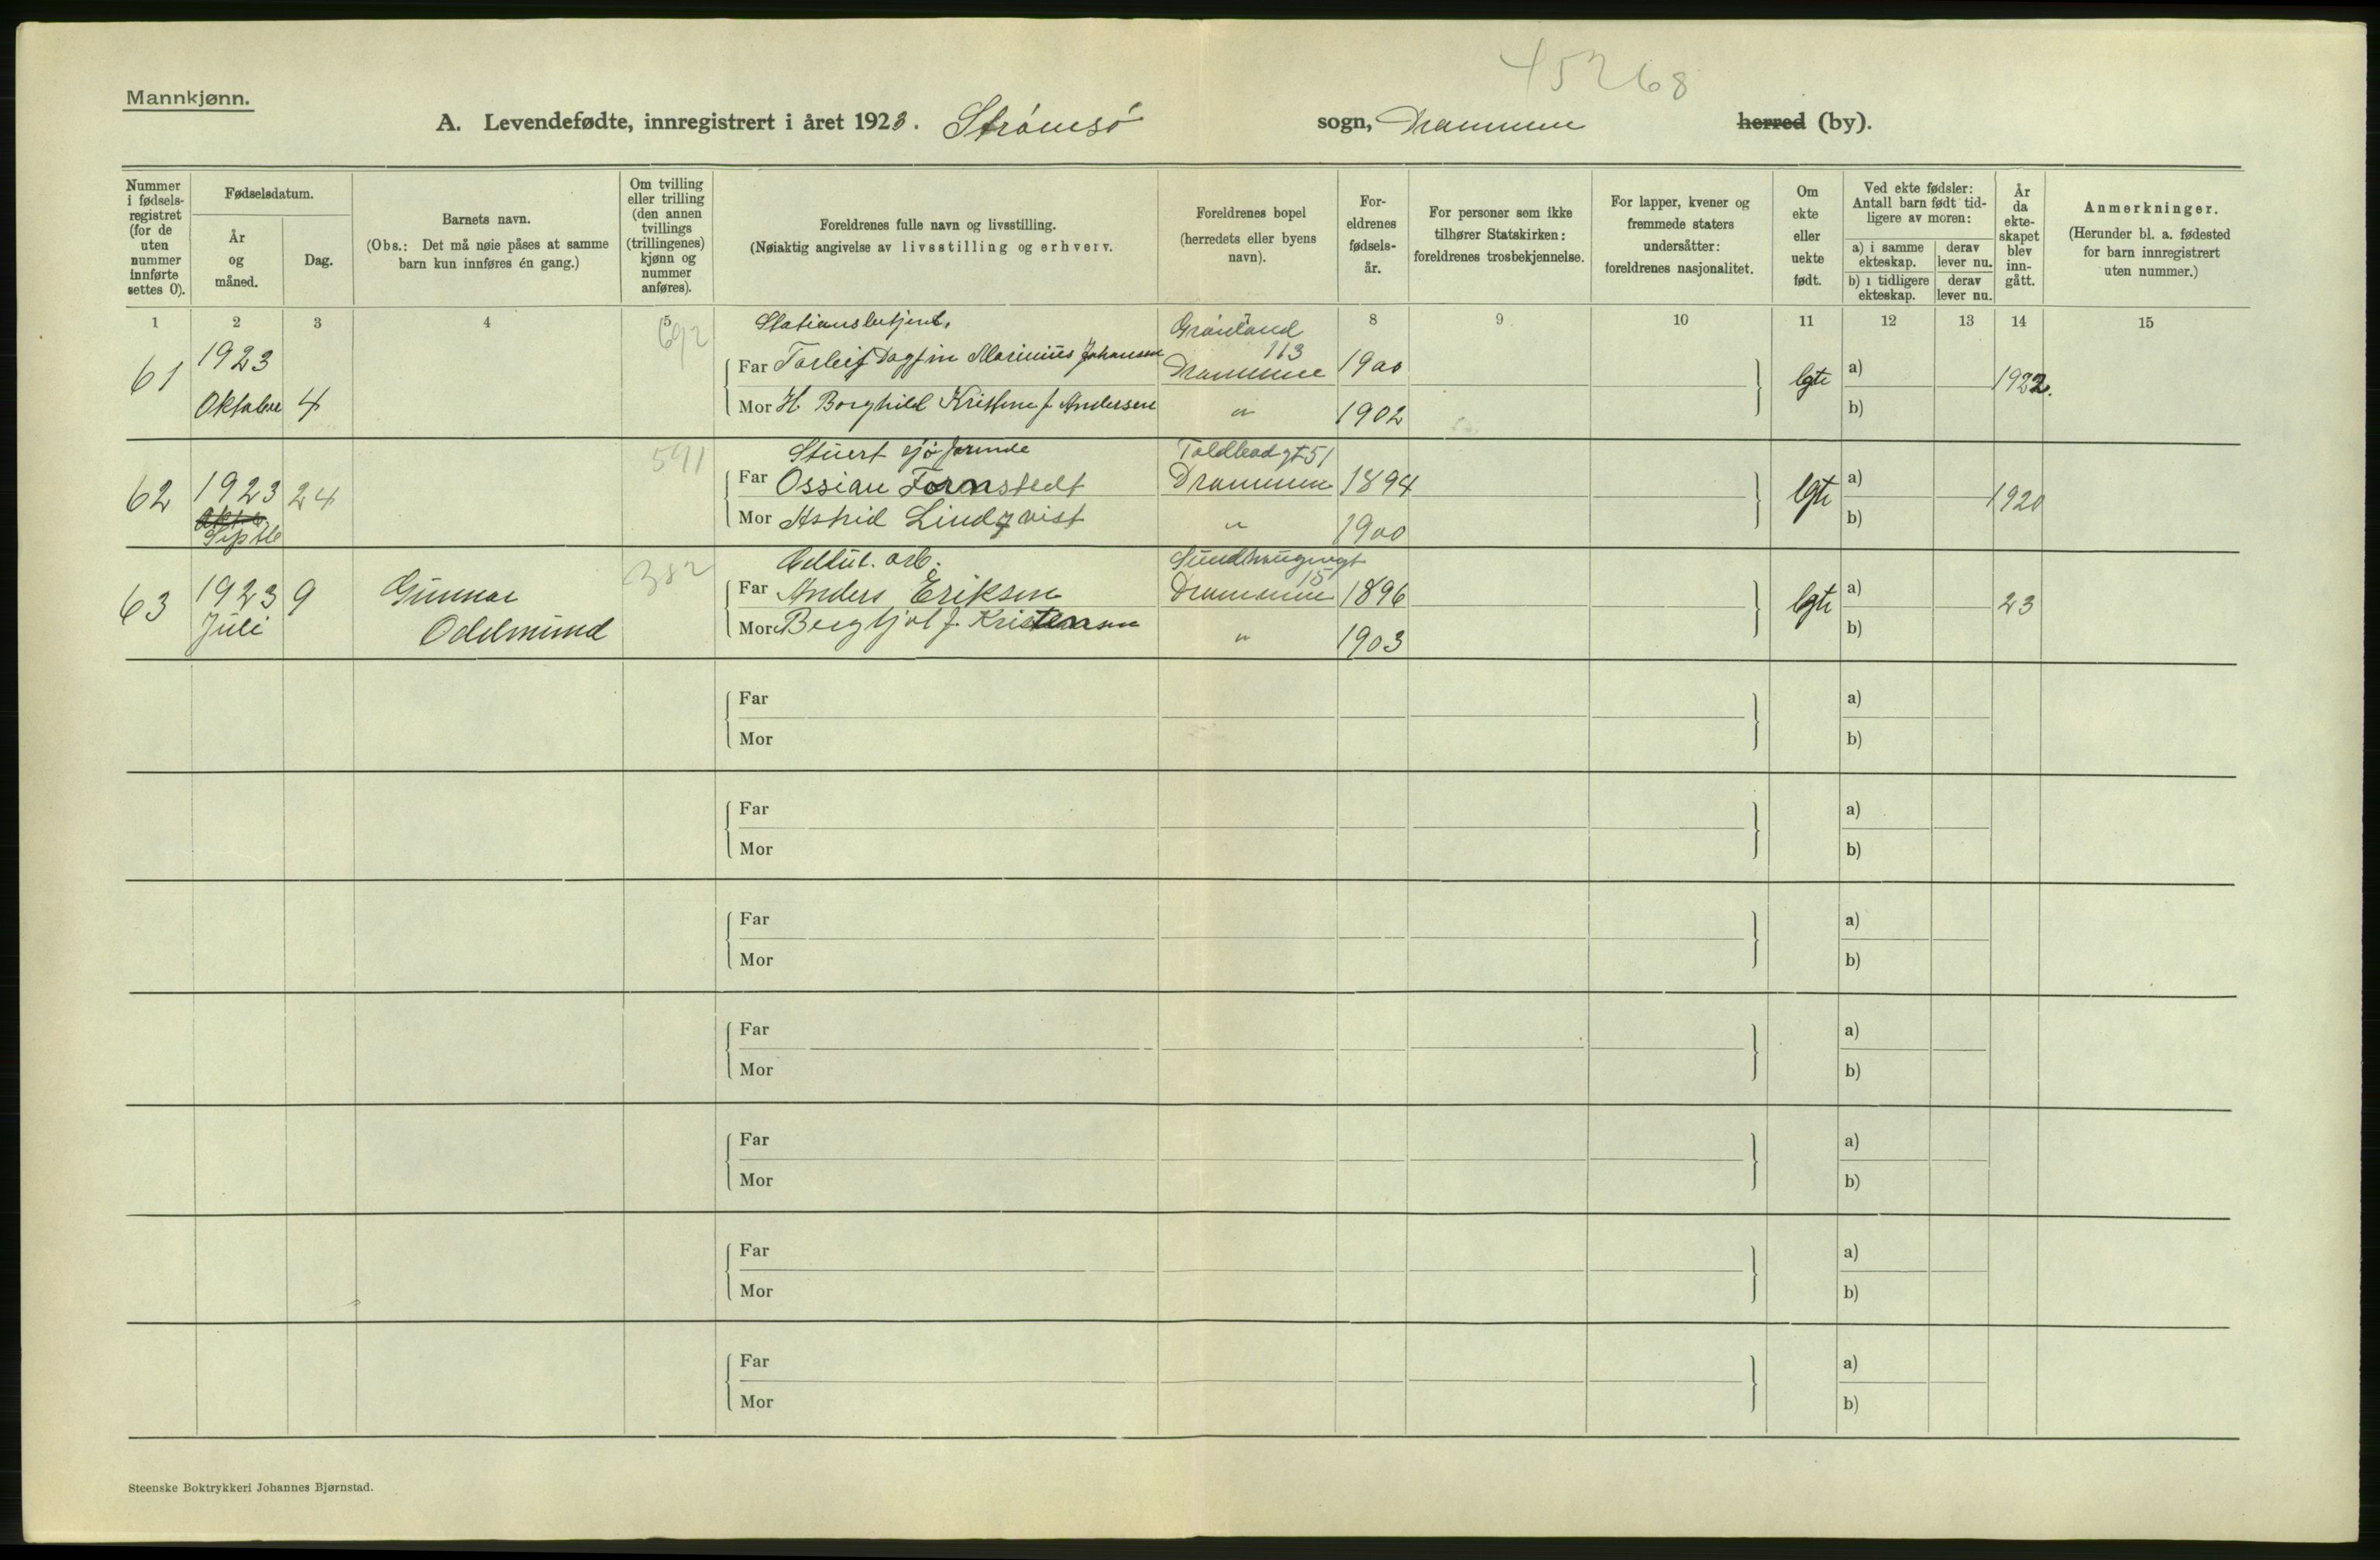 45268
Mannkjønn.
A. Levendefødte, innregistrert i året 1923. Strømsø sogn, Drammen herred (by).
Nummer i fødsels-registret (for de uten nummer innførte settes 0).
Fødselsdatum.
År og måned.
Dag.
Barnets navn.
(Obs.: Det må nøie påses at samme barn kun innføres én gang.)
Om tvilling eller trilling (den annen tvillings (trillingenes) kjønn og nummer anføres).
Foreldrenes fulle navn og livsstilling.
(Nøiaktig angivelse av livsstilling og erhverv.
Foreldrenes bopel (herredets eller byens navn).
For-eldrenes fødsels-år.
For personer som ikke tilhører Statskirken: foreldrenes trosbekjennelse.
For lapper, kvener og fremmede staters undersåtter: foreldrenes nasjonalitet.
Om ekte eller uekte født.
Ved ekte fødsler: Antall barn født tid-ligere av moren:
a) i samme ekteskap.
derav lever nu.
b) i tidligere ekteskap.
derav lever nu.
År da ekte-skapet blev inn-gått.
Anmerkninger.
(Herunder bl. a. fødested for barn innregistrert uten nummer.)
1 2 3 4 5 8 9 10 11 12 13 14 15
692 Stationsbetjent. Grønland 113
61 1923 Far Torleif Dagfin Marinius Johansen Drammen 1900 Egte a) 1922.
Oktober 4 Mor H Borghild Kristine f Andersen " 1902 b)
591 Stuert sjøfarende Toldbodgt 51
62 1923 24 Far Ossian Fornstedt Drammen 1894 Egte a) 1920
Septbe Mor Astrid Lindqvist " 1900 b)
382 Cellul. arb. Sundhaugengt 15
63 1923 9 Gunnar Far Anders Eriksen Drammen 1896 Egte a) 23
Juli Oddmund Mor Bergljot f. Kristensen " 1903 b)
Far a)
Mor b)
Far a)
Mor b)
Far a)
Mor b)
Far a)
Mor b)
Far a)
Mor b)
Far a)
Mor b)
Far a)
Mor b)
Steenske Boktrykkeri Johannes Bjørnstad.